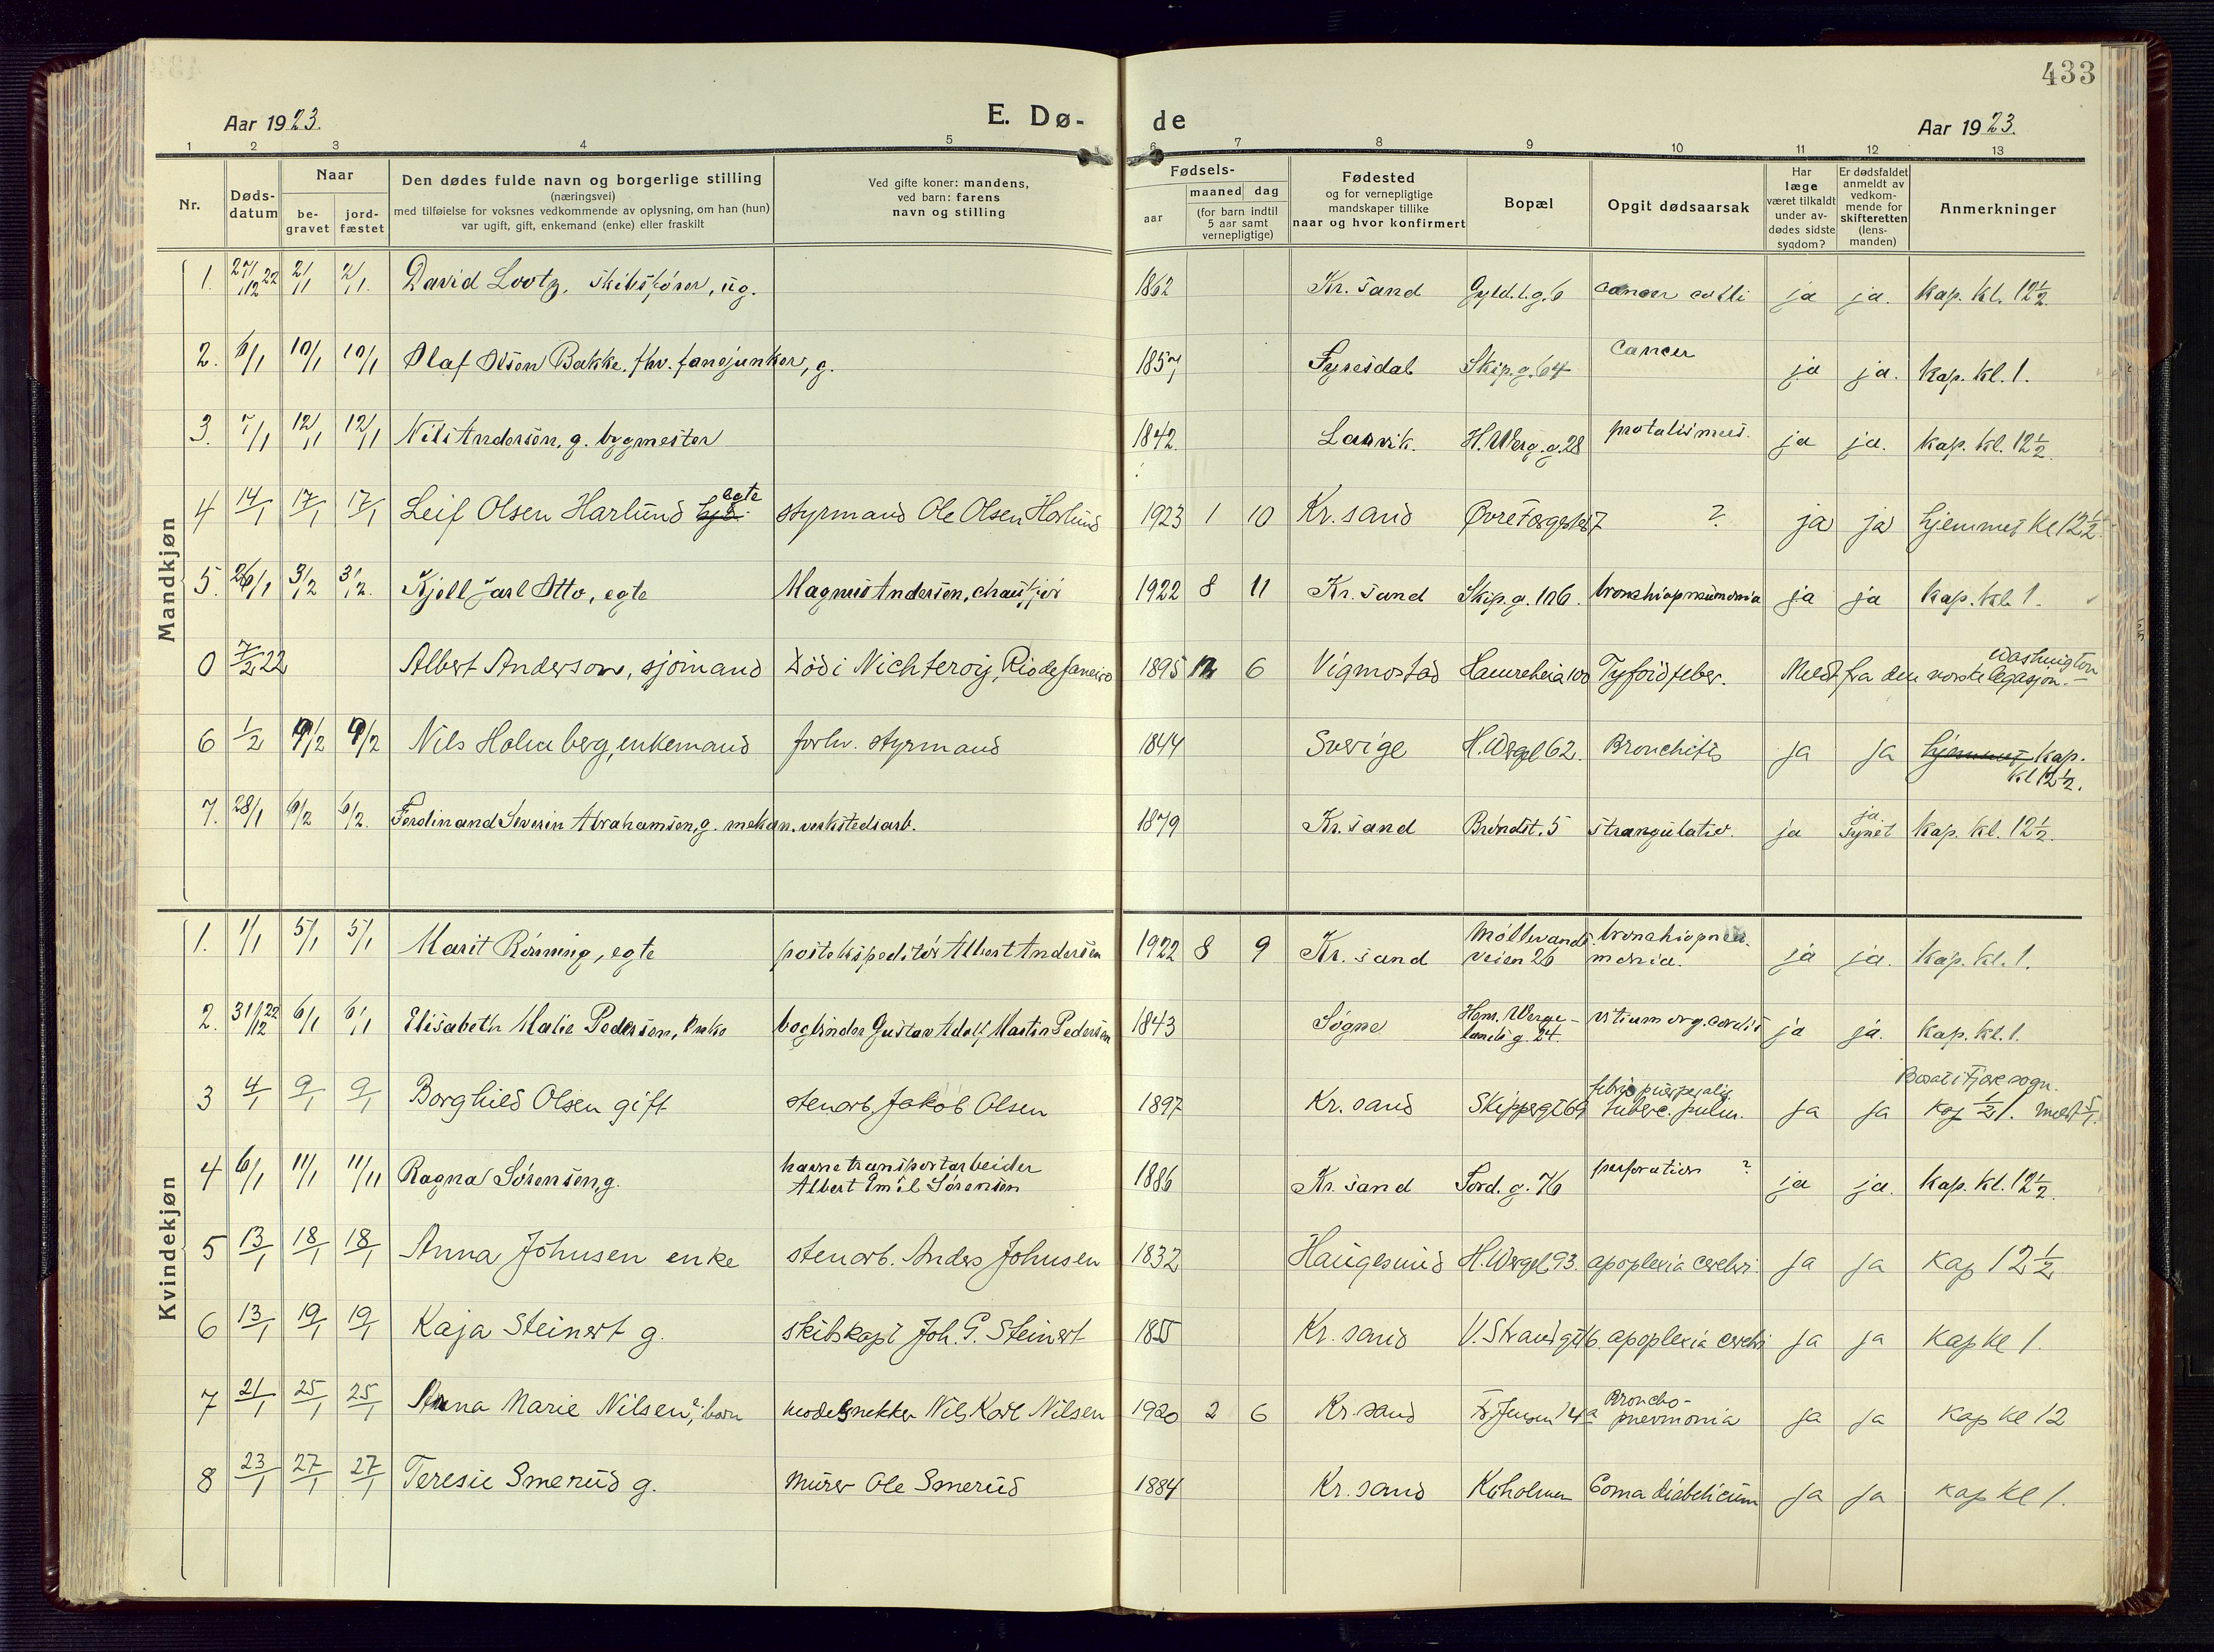 433
Aar 1923.
E. Dø-
de
Aar 1923.
1 2 3 4 5 6 7 8 9 10 11 12 13
Nr.
Døds-
datum
Naar
be-
gravet
jord-
fæstet
Den dødes fulde navn og borgerlige stilling
(næringsvei)
med tilføielse for voksnes vedkommende av oplysning, om han (hun)
var ugift, gift, enkemand (enke) eller fraskilt
Ved gifte koner: mandens,
ved barn: farens
navn og stilling
Fødsels-
aar
maaned dag
(for barn indtil
5 aar samt
vernepligtige)
Fødested
og for vernepligtige
mandskaper tillike
naar og hvor konfirmert
Bopæl
Opgit dødsaarsak
Har
læge
været tilkaldt
under av-
dødes sidste
sygdom?
Er dødsfaldet
anmeldt av
vedkom-
mende for
skifteretten
(lens-
manden)
Anmerkninger
Mandkjøn
1. 27/12 22 2/1 2/1. David Lootz, skibsfører, ug. 1862 Kr. sand Gyld.l.g. 6 cancer colli ja ja. kap. kl. 12½.
2. 6/1 10/1 10/1 Olaf Olsen Bakke, fhv. fanejunker, g. 1857 Fyresdal Skip.g. 64 cancer ja ja. kap. kl. 1.
3. 7/1 12/1 12/1 Nils Andersen, g. bygmester 1842. Larvik. H. Werg. g. 28 ja ja. kap. kl. 12½.
4 14/1 17/1 17/1 Leif Olsen Harlund egte styrmand Ole Olsen Harlund 1923 1 10 Kr. sand Øvre 7 ? ja ja hjemmet kl 12½.
5. 26/1 3/2 3/2. Kjell Jarl Otto, egte Magnus Andersen, chauffør 1922 8 11 Kr. sand Skip. g. 106. bronchiopneumonia ja ja kap. kl. 1.
0 7/2 22 Albert Anderson, sjømand Død i Nichteroy, Rio de Janeiro 1895 12 6 Vigmostad Hamreheia 100 Tyfoidfeber. Meldt fra den norske legasjon. Washington
6 1/2 9/2 9/2 Nils Holmberg, enkemand forhv. styrmand 1844 Sverige H. Wergel 62. Bronchitis ja ja hjemmet kap.
kl 12½.
7. 28/1 6/2 6/2. Ferdinand Severin Abrahamsen, g. mekan. verkstedsarb. 1879 Kr. sand Brøndst. 5 strangulatio. ja ja. Synet kap. kl. 12½.
Kvindekjøn
1. 1/1 5/1 5/1 Marit Rønning, egte postekspeditør Albert Andersen 1922 8 9 Kr. sand Møllevands-
veien 26 bronchiopneu-
monia. ja ja. kap. kl. 1.
2. 31/12 22 6/1 6/1 Elisabeth Malie Pedersen, enke bogbinder Gustav Adolf Martin Pedersen 1843 Søgne Henr. Werge-
lands g. 24. vitium org. cordis ja ja. kap. kl. 1.
3 4/1 9/1 9/1 Borghild Olsen gift stenarb. Jakob Olsen 1897 Kr. sand Skippergt 69 febris puerperalis.
tuberc. pulm. ja ja Bosat i Fjære sogn.
kap ½1. meldt 5/1.
4 6/1 11/1 11/11 Ragna Sørensen, g. havnetransportarbeider
Albert Emil Sørensen 1886 Kr. sand Tord. g. 76 perforation ? ja ja. kap. kl. 12½.
5 13/1 18/1 18/1 Anna Johnsen enke stenarb. Anders Johnsen 1832 Haugesund H. Wergel 93. apoplexia cerebri. ja ja kap 12½
6 13/1 19/1 19/1 Kaja Steinert g. skibskapt Joh. G. Steinert 1855 Kr. sand V. Strandgt 16. apoplexia cerebri ja ja kap kl 1.
7 21/1 25/1 25/1 Anna Marie Nilsen, barn modelsnekker Nils Karl Nilsen 1920 2 6 Kr. sand Jensen 14a Broncho-
pnevmonia ja ja kap kl 12
8 23/1 27/1 27/1 Teresie Smerud g. murer Ole Smerud 1884 Kr. sand Kuholmen Coma diabeticum ja ja kap kl 1.